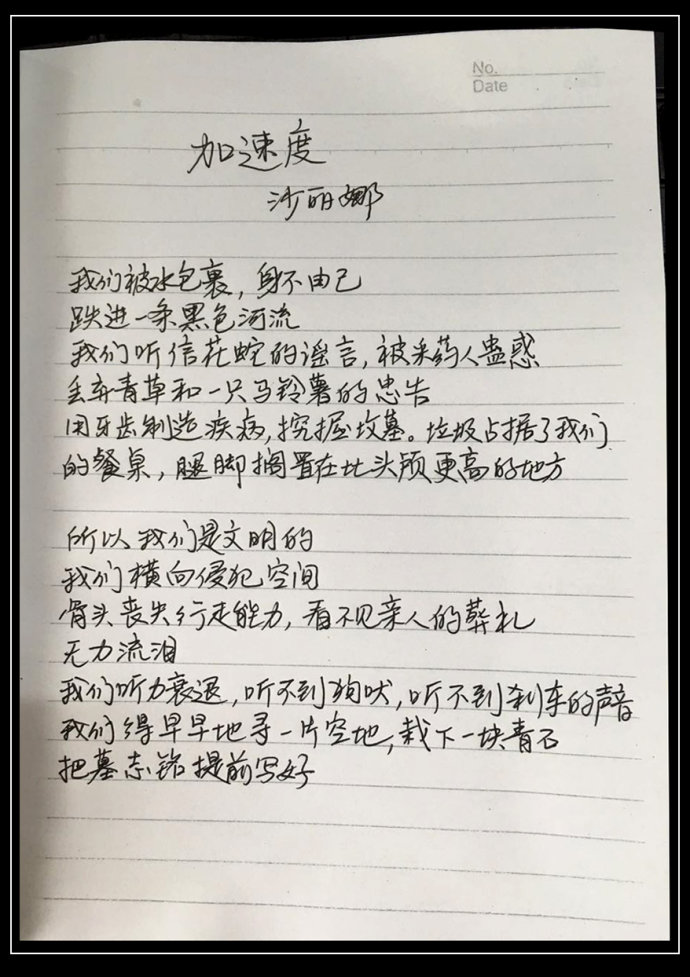 No.
Date
加速度
沙丽娜
我们被水包裹，身不由己
跌进一条黑色河流
我们听信花蛇的谣言，被采药人蛊惑
丢弃青草和一只马铃薯的忠告
用牙齿制造疾病，挖掘坟墓。垃圾占据了我们
的餐桌，腿脚搁置在比头颅更高的地方
所以我们是文明的
我们横向侵犯空间
骨头丧失行走能力，看不见亲人的葬礼
无力流泪
我们听力衰退，听不到狗吠，听不到刹车的声音
我们得早早地寻一片空地，栽下一块青石
把墓志铭提前写好